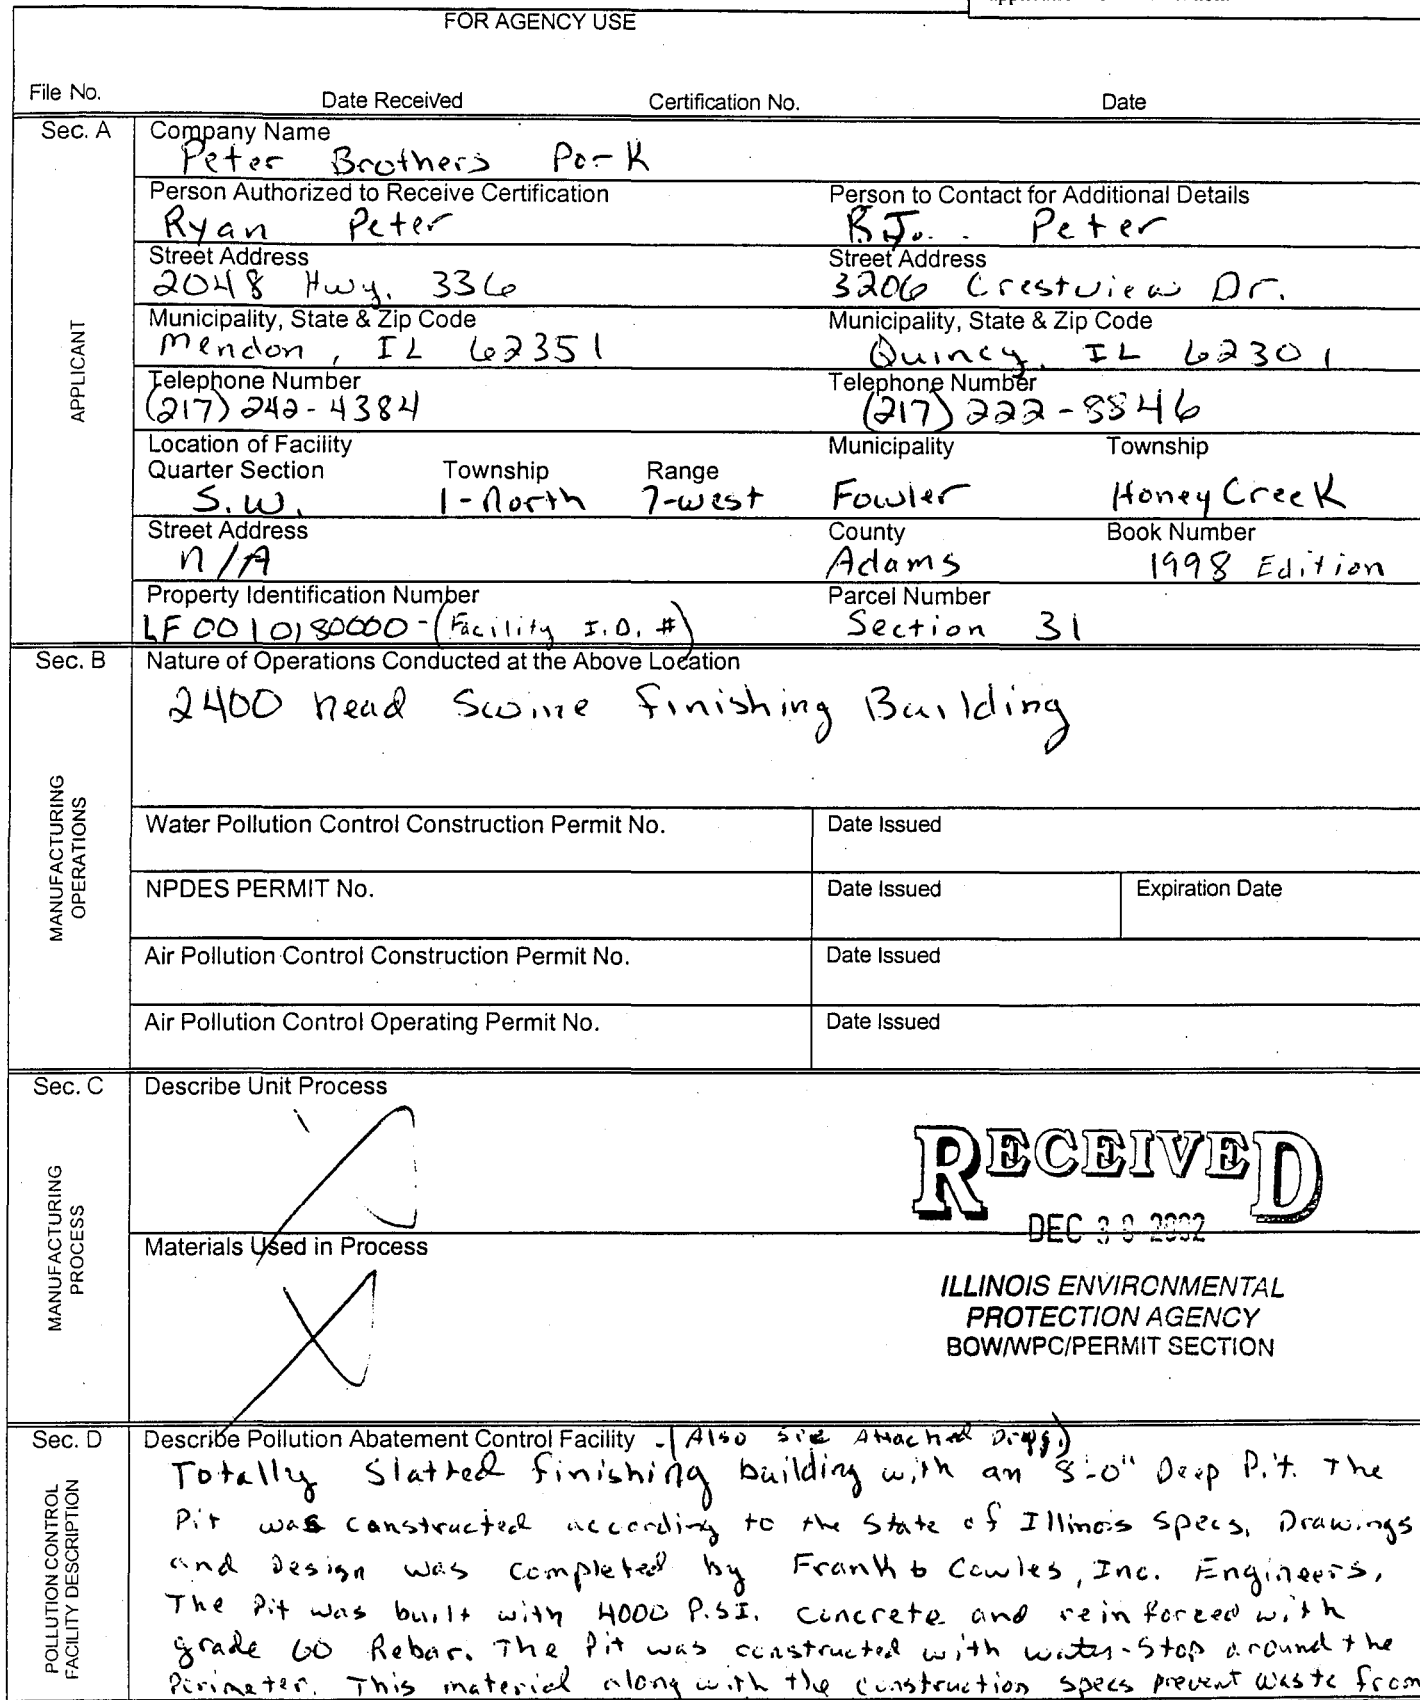 FOR AGENCY USE
File No. Date Received Certification No. Date
Sec. A
APPLICANT
Company Name
Peter Brothers Pork
Person Authorized to Receive Certification Person to Contact for Additional Details
Ryan Peter R.J. Peter
Street Address Street Address
2048 Hwy. 336 3206 Crestview Dr.
Municipality, State & Zip Code Municipality, State & Zip Code
Mendon, IL 62351 Quincy, IL 62301
Telephone Number Telephone Number
(217) 242-4384 (217) 222-8846
Location of Facility Municipality Township
Quarter Section Township Range
S.W. 1-North 7-west Fowler Honey Creek
Street Address County Book Number
n/A Adams 1998 Edition
Property Identification Number Parcel Number
LF0010180000-(Facility I.D. #) Section 31
Sec. B
MANUFACTURING
OPERATIONS
Nature of Operations Conducted at the Above Location
2400 head Swine Finishing Building
Water Pollution Control Construction Permit No. Date Issued
NPDES PERMIT No. Date Issued Expiration Date
Air Pollution Control Construction Permit No. Date Issued
Air Pollution Control Operating Permit No. Date Issued
Sec. C
MANUFACTURING
PROCESS
Describe Unit Process
RECEIVED
DEC 2002
Materials Used in Process
ILLINOIS ENVIRONMENTAL
PROTECTION AGENCY
BOW/WPC/PERMIT SECTION
Sec. D
POLLUTION CONTROL
FACILITY DESCRIPTION
Describe Pollution Abatement Control Facility -(Also see Attached Drwgs.)
Totally Slatted finishing building with an 8'-0" Deep Pit. The
Pit was constructed according to the State of Illinois Specs. Drawings
and Design was completed by Frank & Cowles, Inc. Engineers.
The Pit was built with 4000 P.S.I. concrete and reinforced with
grade 60 Rebar. The Pit was constructed with water-Stop around the
Perimeter. This material along with the construction specs prevent waste from